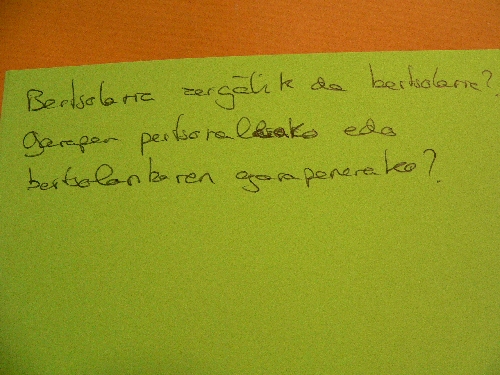 Bertsolaria zergatik da bertsolaria?
garapen pertsonalerako edo
bertsolaritzaren garapenerako?